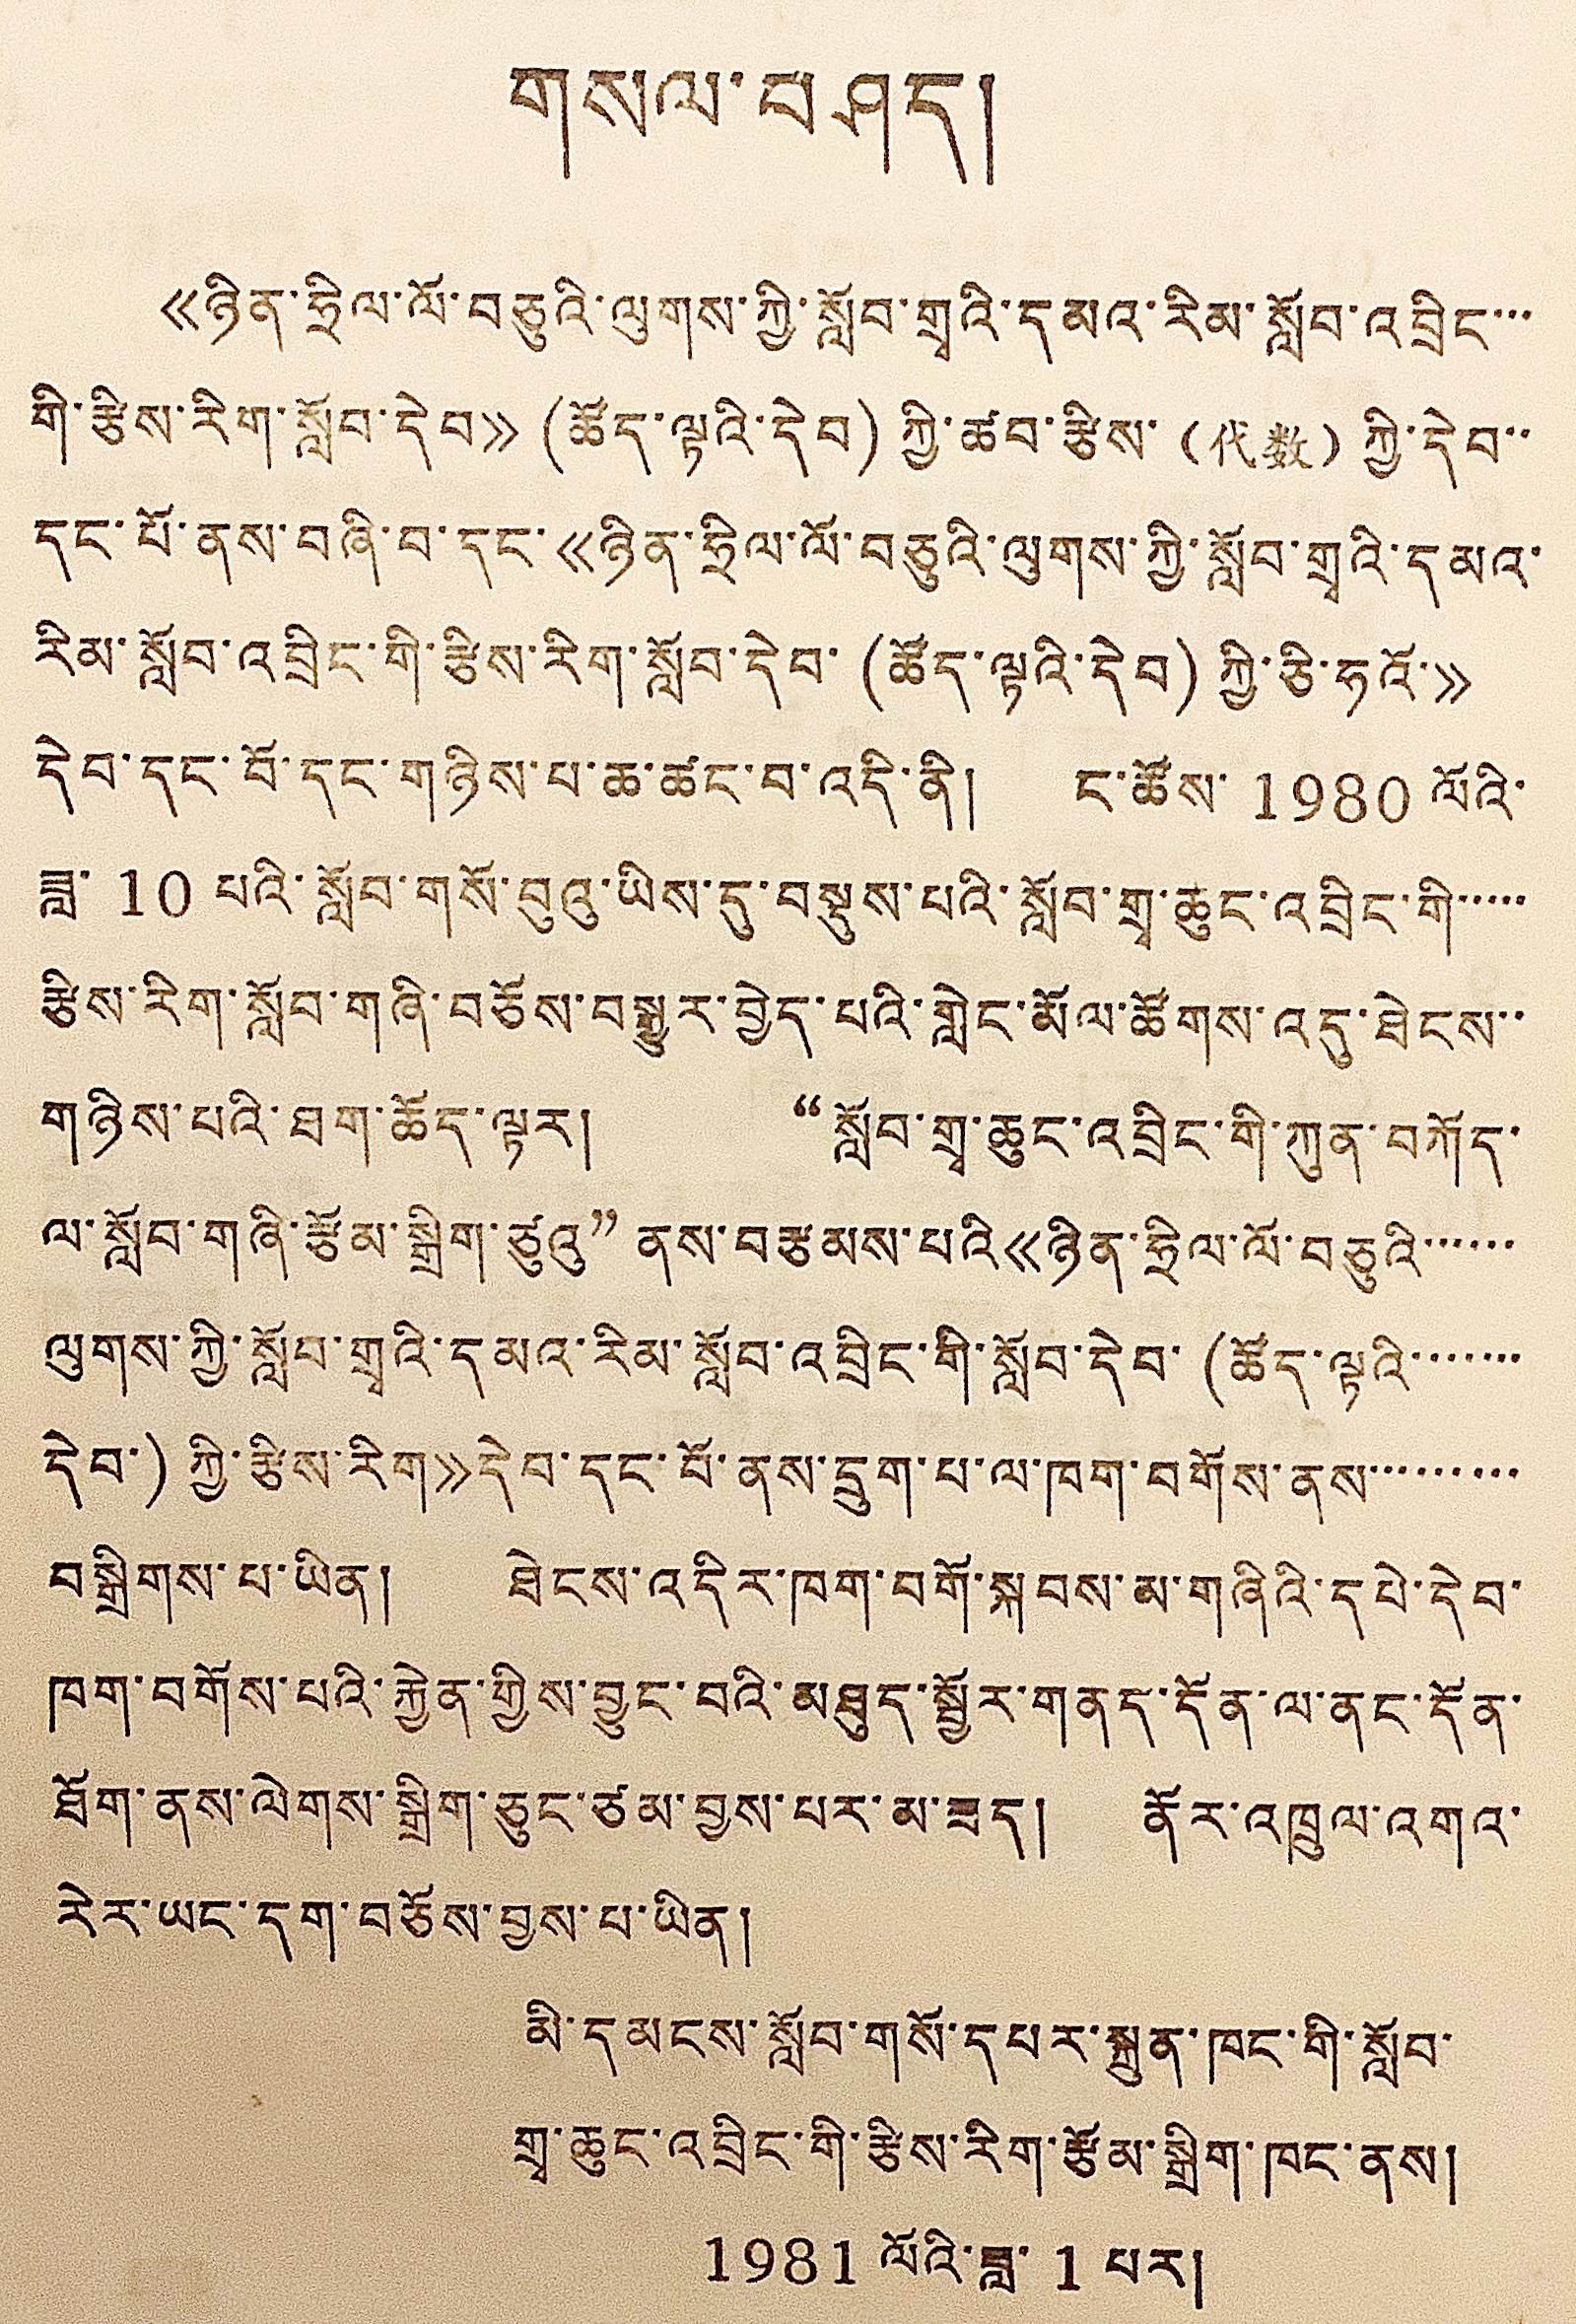 གསལ་བཤད།
《ཉིན་ཧྲིལ་ལོ་བཅུའི་ལུགས་ཀྱི་སློབ་གྲྭའི་དམའ་རིམ་སློབ་འབྲིང་···
གི་རྩིས་རིག་སློབ་དེབ》 (ཚོད་ལྟའི་དེབ) ཀྱི་ཚབ་རྩིས་ (代数) ཀྱི་དེབ་··
དང་པོ་ནས་བཞི་བ་དང་《ཉིན་ཧྲིལ་ལོ་བཅུའི་ལུགས་ཀྱི་སློབ་གྲྭའི་དམའ་
རིམ་སློབ་འབྲིང་གི་རྩིས་རིག་སློབ་དེབ་ (ཚོད་ལྟའི་དེབ) ཀྱི་ཅི་ཧའོ་》
དེབ་དང་པོ་དང་གཉིས་པ་ཆ་ཚང་བ་འདི་ནི། ང་ཚོས་ 1980 ལོའི་
ཟླ་ 10 པའི་སློབ་གསོ་བུའུ་ཡིས་དུ་བསྡུས་པའི་སློབ་གྲྭ་ཆུང་འབྲིང་གི་····
རྩིས་རིག་སློབ་གཞི་བཅོས་བསྒྱུར་བྱེད་པའི་གླེང་མོལ་ཚོགས་འདུ་ཐེངས་··
གཉིས་པའི་ཐག་ཆོད་ལྟར། “སློབ་གྲྭ་ཆུང་འབྲིང་གི་ཀུན་བཀོད་
ལ་སློབ་གཞི་རྩོམ་སྒྲིག་ཙུའུ” ནས་བརྩམས་པའི《ཉིན་ཧྲིལ་ལོ་བཅུའི······
ལུགས་ཀྱི་སློབ་གྲྭའི་དམའ་རིམ་སློབ་འབྲིང་གི་སློབ་དེབ་ (ཚོད་ལྟའི·······
དེབ་) ཀྱི་རྩིས་རིག》དེབ་དང་པོ་ནས་དྲུག་པ་ལ་ཁག་བགོས་ནས·········
བསྒྲིགས་པ་ཡིན། ཐེངས་འདིར་ཁག་བགོ་སྐབས་མ་གཞིའི་དཔེ་དེབ་
ཁག་བགོས་པའི་རྐྱེན་གྱིས་བྱུང་བའི་མཐུད་སྦྱོར་གནད་དོན་ལ་ནང་དོན་
ཐོག་ནས་ལེགས་སྒྲིག་ཅུང་ཙམ་བྱས་པར་མ་ཟད། ནོར་འཁྲུལ་འགའ་
རེར་ཡང་དག་བཅོས་བྱས་པ་ཡིན།
མི་དམངས་སློབ་གསོ་དཔར་སྐྲུན་ཁང་གི་སློབ་
གྲྭ་ཆུང་འབྲིང་གི་རྩིས་རིག་རྩོམ་སྒྲིག་ཁང་ནས།
1981 ལོའི་ཟླ་ 1 པར།